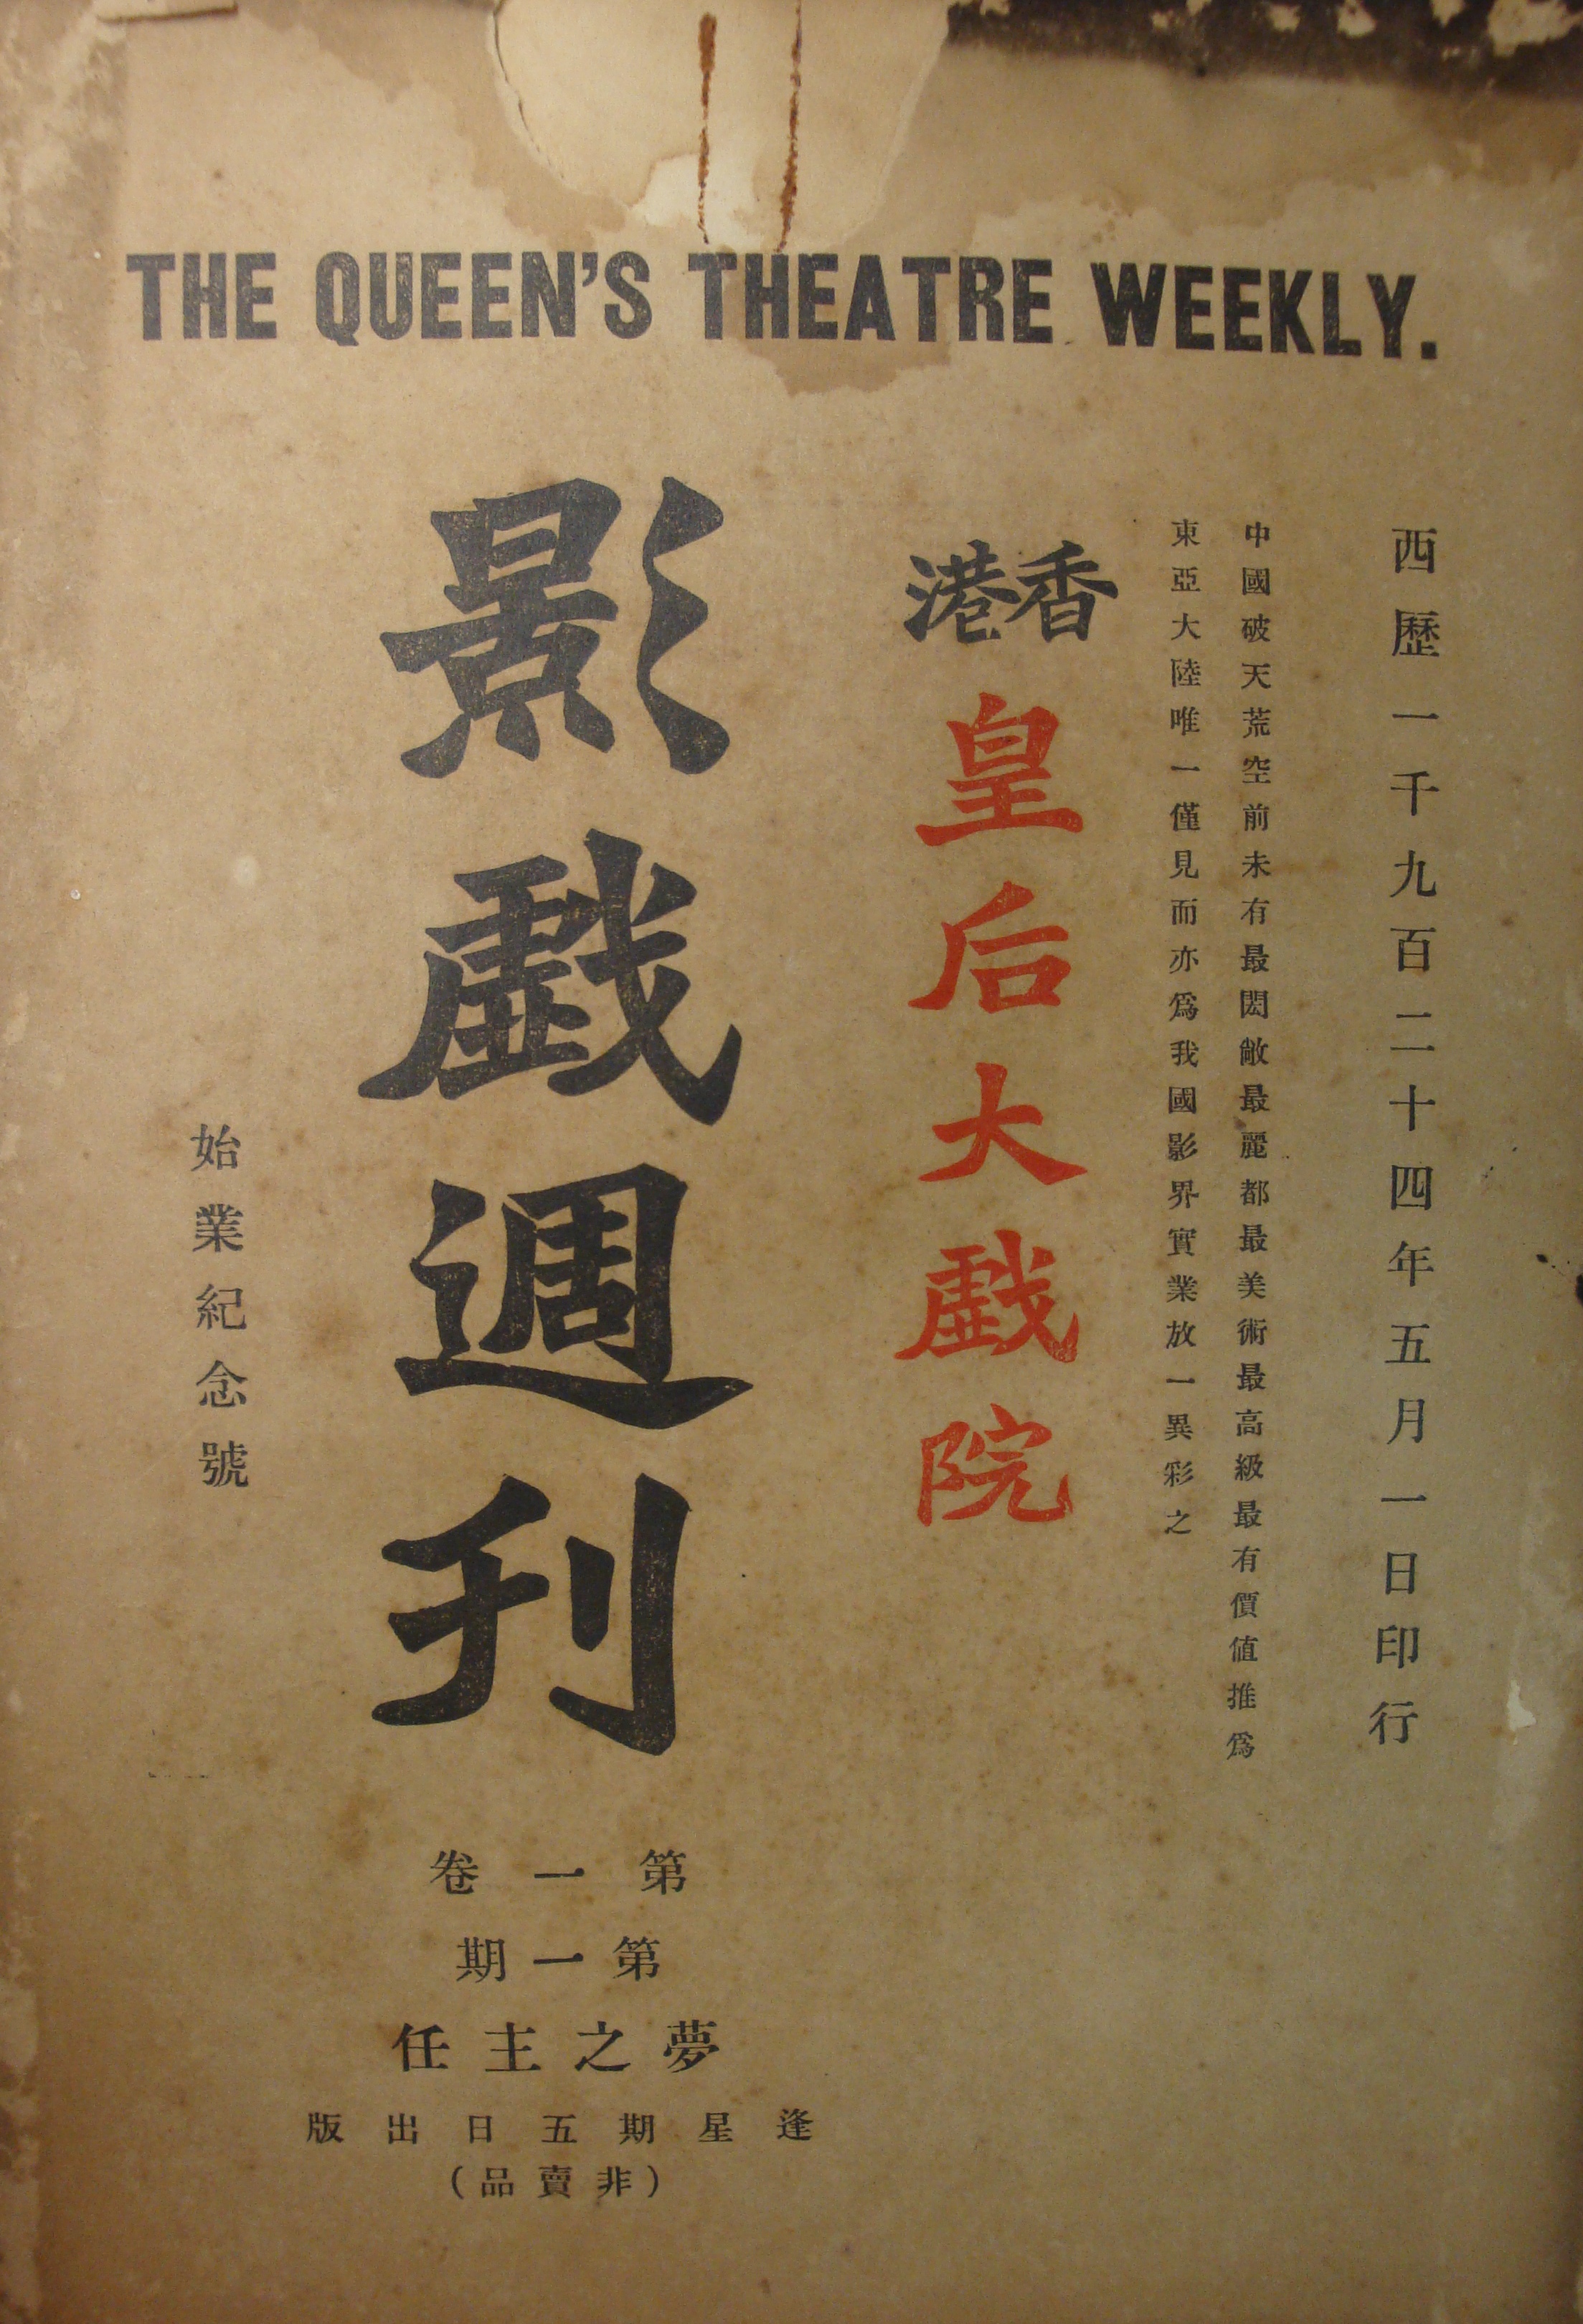 THE QUEEN'S THEATRE WEEKLY.
西歷一千九百二十四年五月一日印行
中國破天荒空前未有最閎敞最麗都最美術最高級最有價值推爲
東亞大陸唯一僅見而亦爲我國影界實業放一異彩之
香港
皇后大戲院
影戲週刊
始業紀念號
第一卷
第一期
夢之主任
逢星期五日出版
(非賣品)